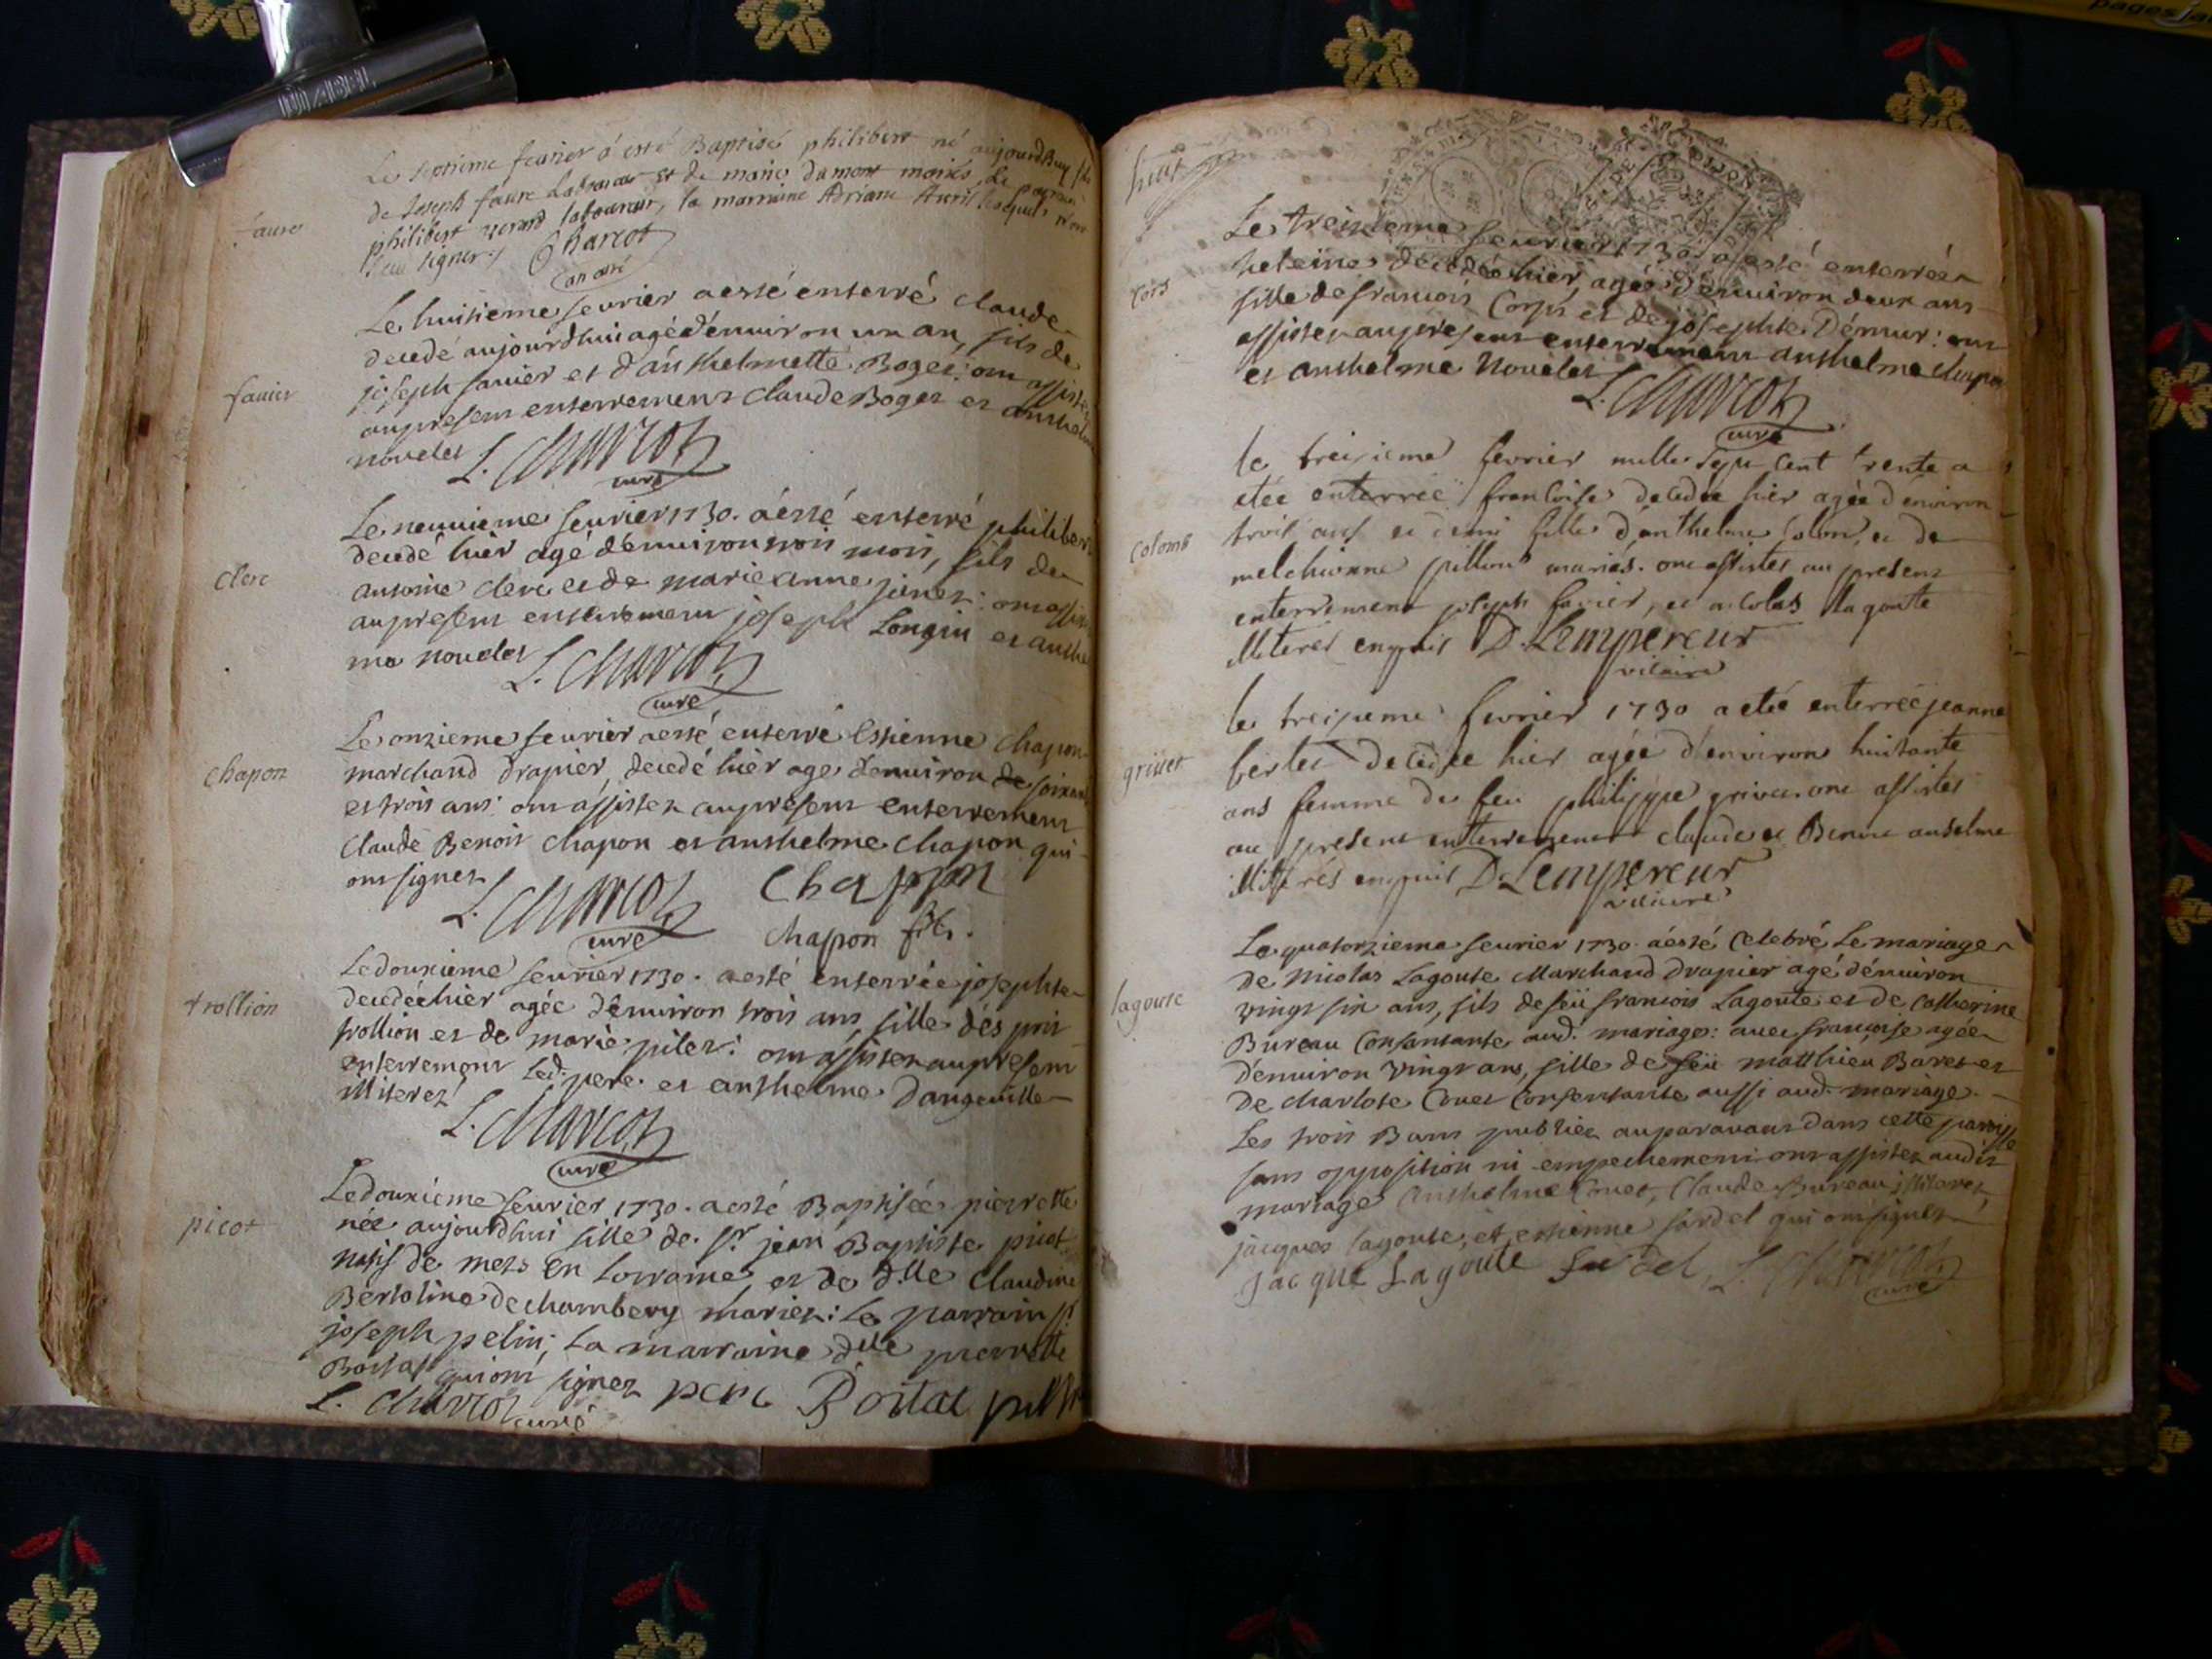 DIABEL
pages ja
faure
Le septieme feurier a esté Baptisé philibert né aujourdhuy fils
de Joseph faure Laboureur et de marie dumont mariés, Le parrain
philibert laboureur, la marraine Adriane lesquels n'ont
sceu signer. Charcot
favier
Le huitieme feurier a esté enterré claude
decedé aujourdhui agé d'enuiron un an, fils de
joseph favier et d'anthelmette Boget: ont assistez
au present enterrement claude Boget et anthel
nouelet L. Charcot
curé
Clerc
Le neuuieme feurier 1730. a esté enterré philibert
decedé hier agé d'enuiron trois mois, fils de
antoine clerc et de marie anne : ont assis
au present enterrement joseph Longin et anthel
me nouelet L. Charcot
curé
chapon
Le onzieme feurier a esté enterré Estienne chapon
marchand drapier, decedé hier agé d'enuiron de soixante
et trois ans: ont assistez au present enterrement
claude Benoit chapon et anthelme chapon qui
ont signez L. Charcot Chapon
curé chapon fils.
trollion
Le douzieme feurier 1730. a esté enterrée josephte
decedée hier agée d'enuiron trois ans, fille d'esprit
trollion et de marie pilez: ont assistez au present
enterrement led. pere. et anthelme Dangeuille
illiterez L. Charcot
curé
picot
Le douzieme feurier 1730. a esté Baptisée pierrette
née aujourdhui fille de Sr. jean Baptiste picot
natif de mets en Lorraine et de d.lle Claudine
Bertoline de chambery mariez: le parrain Sr.
joseph pelin; La marraine dlle pierrette
qui ont signez Portal
L. Charcot curé
huit
Cors
Le treizieme feurier 1730. a esté enterrée
heleine decedée hier, agée d'enuiron deux ans
fille de francois Corps et de josephte Démur: ont
assistez au present enterrement anthelme chapon
et anthelme Nouelet L. Charcot
curé
Colomb
le treizieme fevrier mille sept cent trente a
etée enterreé francoise decedée hier agée d'environ
trois ans et demi fille d'anthelme Colom, et de
melchionne pillion mariés. ont assistes au present
enterrement joseph favier, et nicolas lagoutte
illiterés enquis D. Lempereur
vicaire
grivet
le treizieme fevrier 1730 a eté enterreé jeanne
decedée hier agée d'environ huitante
ans femme de feu philippe grivet. ont assistes
au present enterrement claude et anselme
illiterés enquis D. Lempereur
vicaire
lagoute
Le quatorzieme feurier 1730. a esté Celebré Le mariage
de Nicolas Lagoute Marchand Drapier agé d'énuiron
vingt six ans, fils de feü francois Lagoute et de Catherine
Bureau Consantante aud. mariage: auec françoise agée
d'enuiron vingt ans, fille de feü matthieu Baret et
de charlote Couet Consentante aussi aud. mariage.
Les trois Bans publiez auparauant dans cette paroisse
sans opposition ni empechement: ont assistez audit
mariage Anthelme Couet, Claude Bureau illiterez,
jacques lagoute, et estienne sardel qui ont signez
Jacque Lagoute Sardel L. Charcot
curé